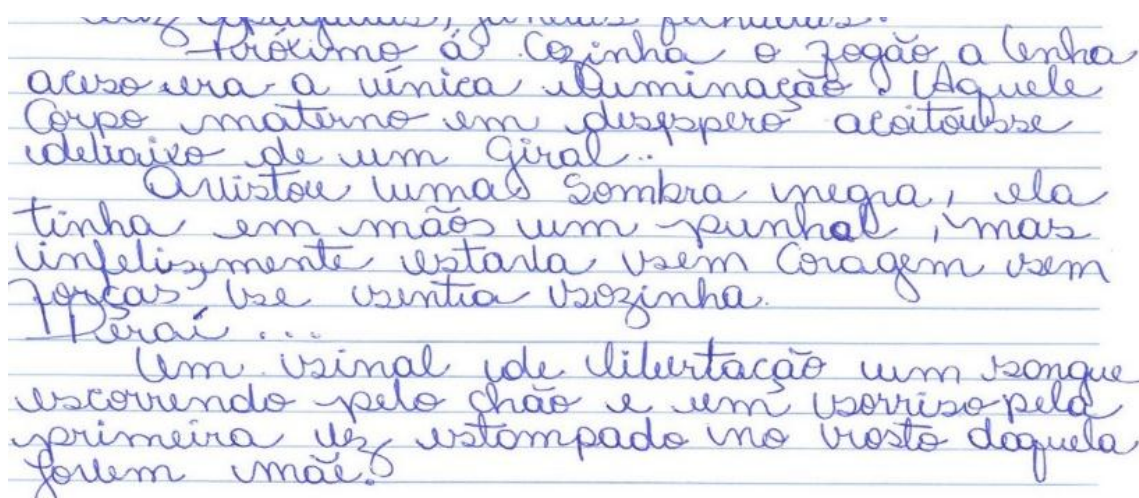 luz apagadas, janelas fechadas.
Próximo á Cozinha o fogão a lenha
aceso era a uínica iluminação. Aquele
Corpo materno em desespero acoitousse
debaixo de um Giral..
Avistou uma Sombra negra, ela
tinha em mãos um punhal, mas
infelismente estava sem Coragem sem
forças, se sentia sozinha.
Peraí...
Um sinal de libertação um sangue
escorrendo pelo chão e um sorriso pela
primeira vez estampado no rosto daquela
jovem mãe.